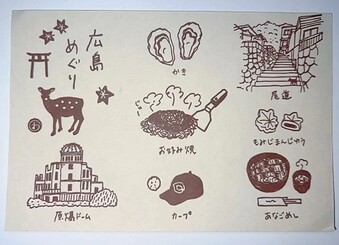 広島
めぐり
かき
尾道
お好み焼
もみじまんじゅう
原爆ドーム
カープ
あなごめし